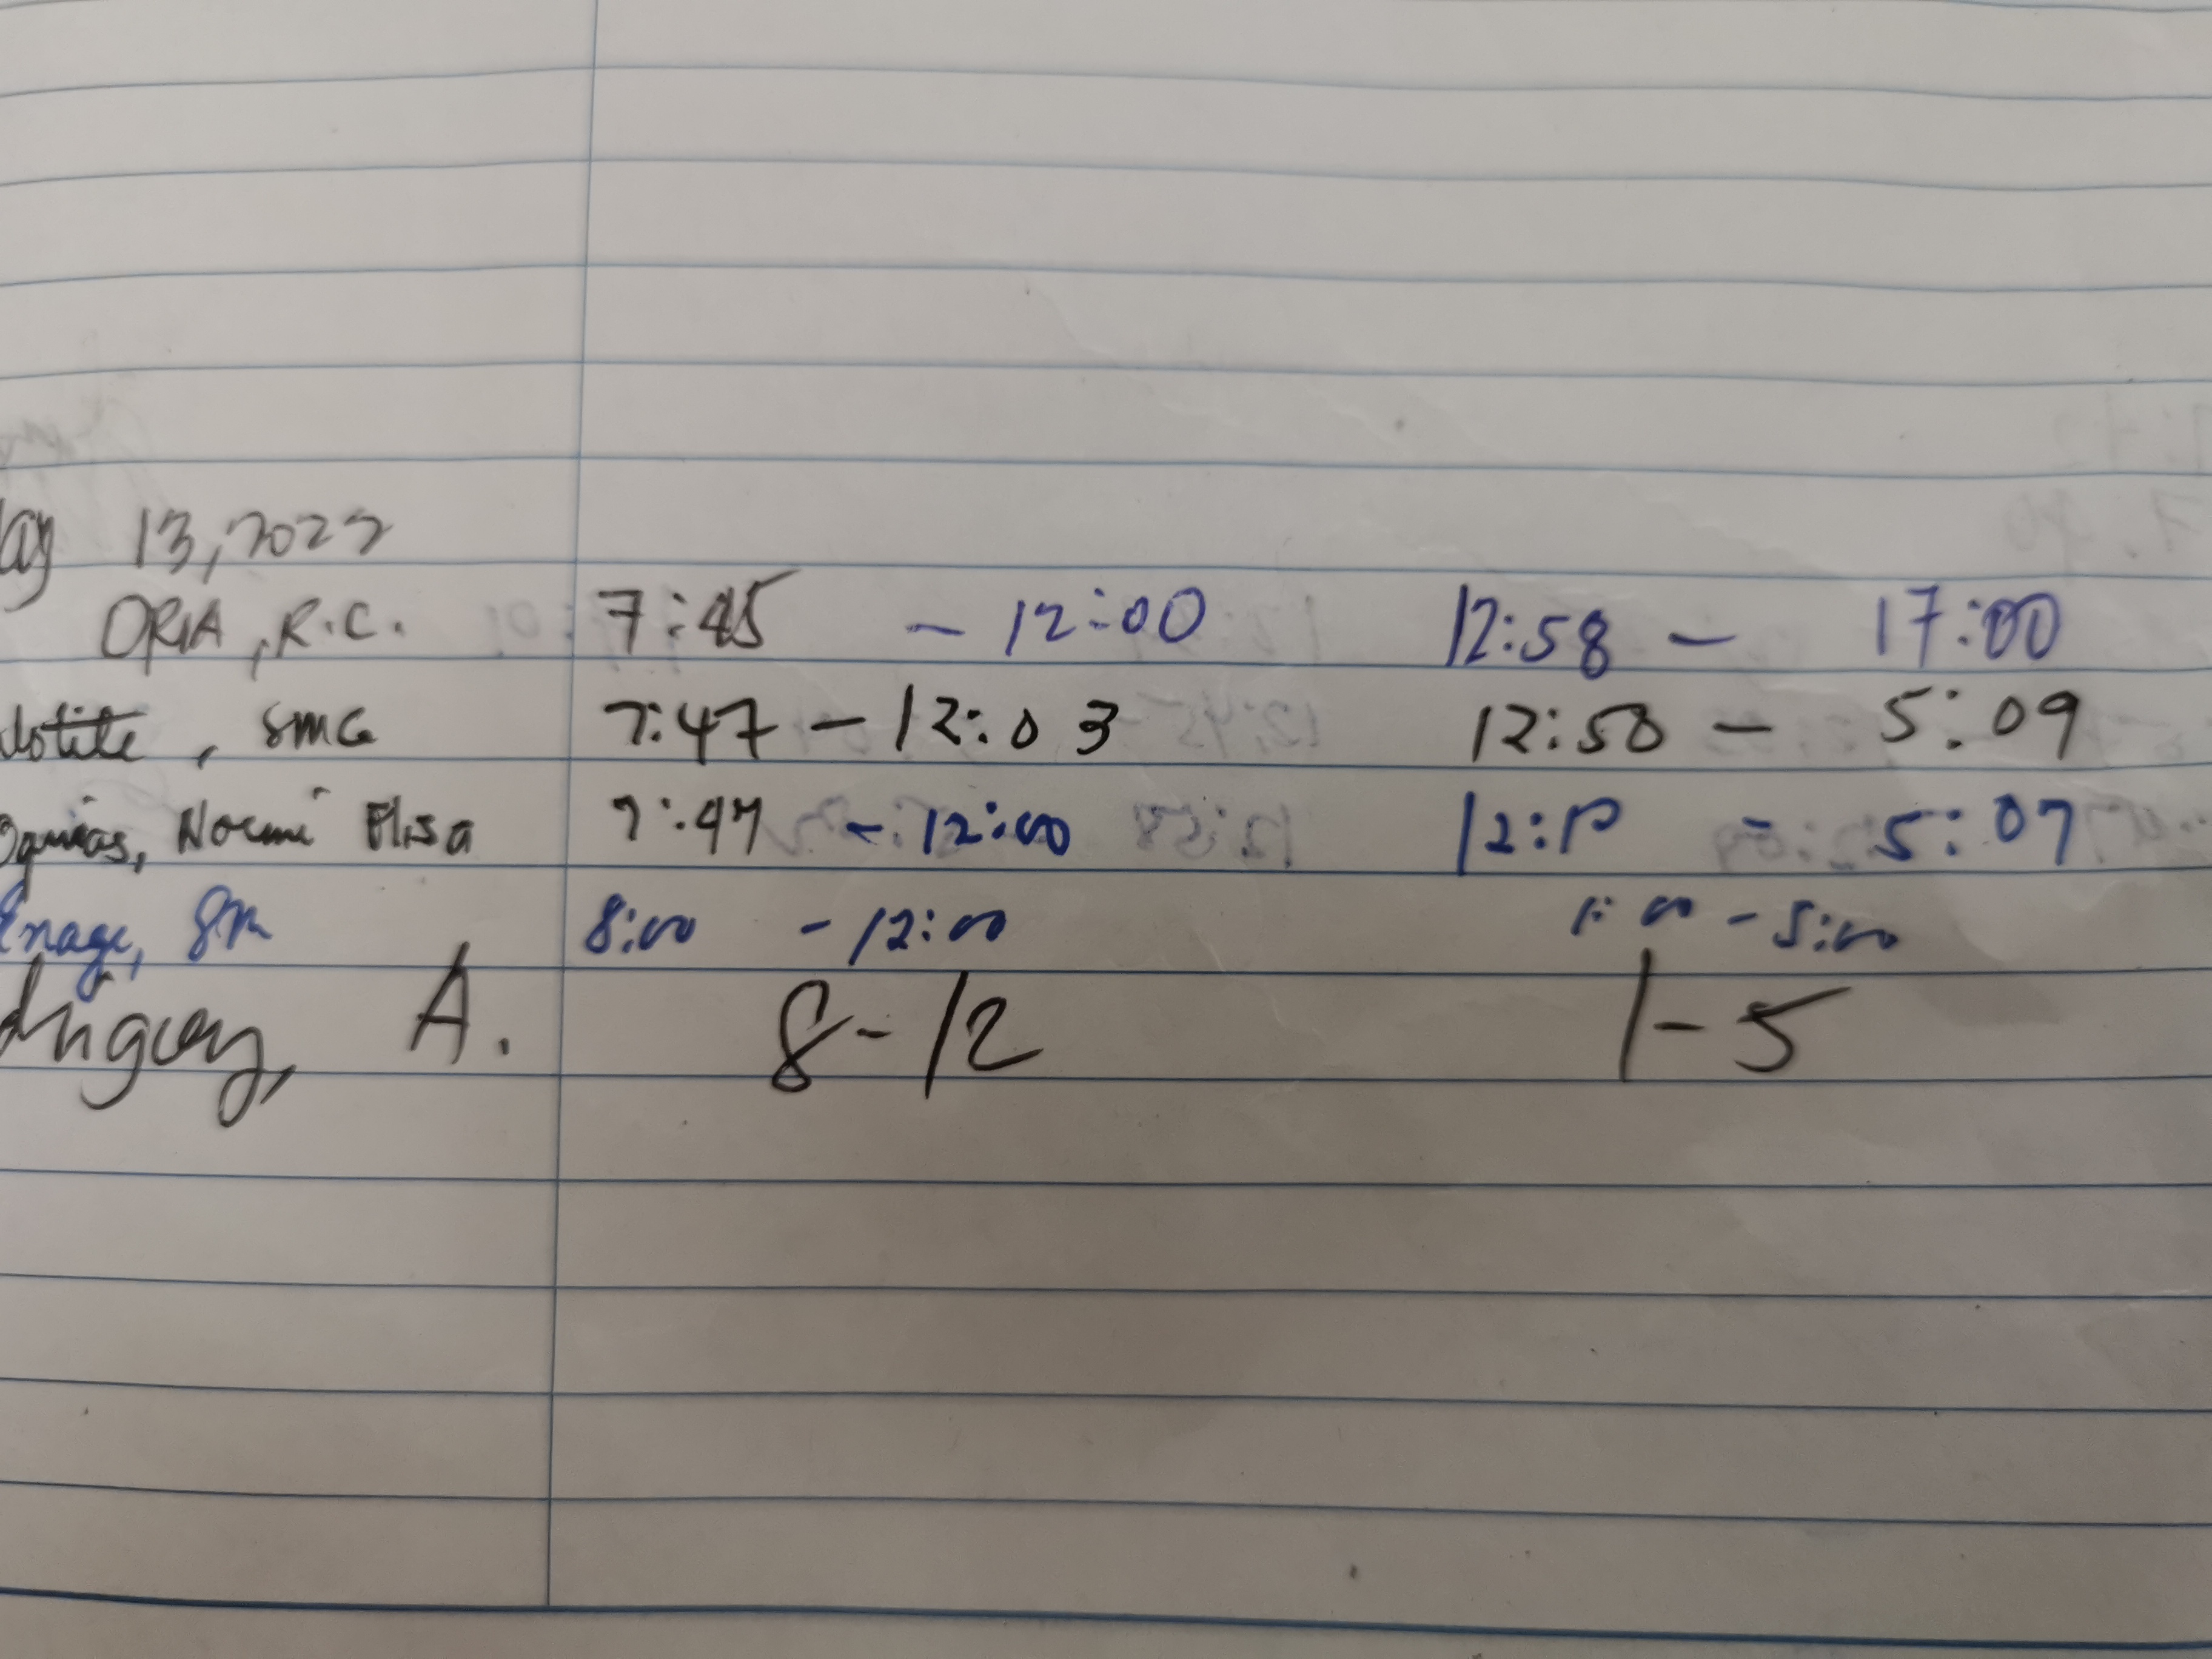 13, 2022
ORIA, R.C. 7:45 - 12:00 12:58 - 17:00
, SMG 7:47 - 12:03 12:58 - 5:09
Noemi Elisa 7:47 - 12:00 12: - 5:07
Enage, SM 8:00 - 12:00 1:00 - 5:00
A. 8-12 1-5